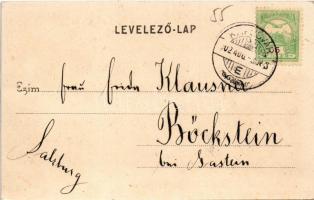 55
LEVELEZŐ-LAP
902 AUG.
E
Czím: Frau Frida Klausner
Böckstein
bei Gastein
Salzburg